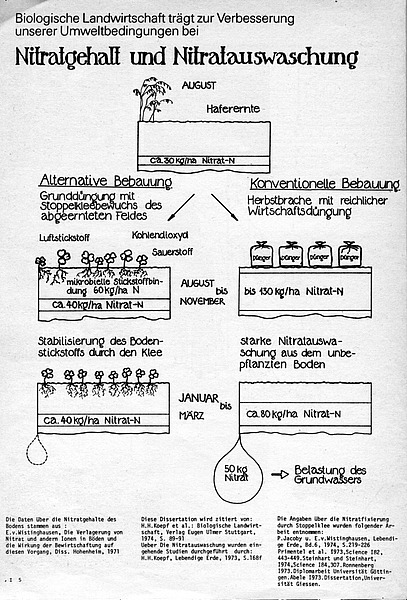 Biologische Landwirtschaft trägt zur Verbesserung
unserer Umweltbedingungen bei
Nitratgehalt und Nitratauswaschung
AUGUST
Haferernte
ca. 30 kg/ha Nitrat-N
Alternative Bebauung
Grunddüngung mit
Stoppelkleebewuchs des
abgeernteten Feldes
Konventionelle Bebauung
Herbstbrache mit reichlicher
Wirtschaftsdüngung
Luftstickstoff
Kohlendioxyd
Sauerstoff
mikrobielle Stickstoffbin-
dung 60 kg/ha N
ca. 40 kg/ha Nitrat-N
AUGUST
bis
NOVEMBER
Dünger
Dünger
Dünger
Dünger
bis 130 kg/ha Nitrat-N
Stabilisierung des Boden-
stickstoffs durch den Klee
starke Nitratauswa-
schung aus dem unbe-
pflanzten Boden
ca. 40 kg/ha Nitrat-N
JANUAR
bis
MÄRZ
ca. 80 kg/ha Nitrat-N
50 kg
Nitrat
Belastung des
Grundwassers
Die Daten über die Nitratgehalte des
Bodens stammen aus :
E.v.Wistinghausen, Die Verlagerung von
Nitrat und andern Ionen in Böden und
die Wirkung der Bewirtschaftung auf
diesen Vorgang, Diss. Hohenheim, 1971
Diese Dissertation wird zitiert von:
H.H.Koepf et al.: Biologische Landwirt-
schaft, Verlag Eugen Ulmer Stuttgart,
1974, S. 89-91
Ueber Die Nitratauswaschung wurden ein-
gehende Studien durchgeführt durch:
H.H.Koepf, Lebendige Erde, 1973, S.168f
Die Angaben über die Nitratfixierung
durch Stoppelklee wurden folgender Ar-
beit entnommen:
P.Jacoby u. E.v.Wistinghausen, Lebendi-
ge Erde, Bd.6, 1974, S.219-226
Primentel et al. 1973,Science 182,
443-449.Steinhart und Steinhart,
1974,Science 184,307.Ronnenberg
1973.Diplomarbeit Universität Göttin-
gen.Abele 1973.Dissertation,Univer-
sität Giessen.